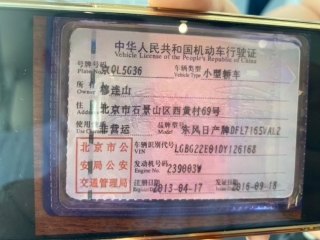 中华人民共和国机动车行驶证
Vehicle License of the People's Republic of China
号牌号码 京QL5G36 车辆类型 小型轿车
Plate No. Vehicle Type
所有人 穆连山
Owner
住址 北京市石景山区西黄村69号
Address
使用性质 非营运 品牌型号 东风日产牌DFL7165VAL2
Use Character Model
北京市公 车辆识别代号 LGBG22E01DY126168
安局公安 VIN
交通管理局 发动机号码 239003W
Engine No.
注册日期 2013-04-17 发证日期 2016-09-18
Register Date Issue Date